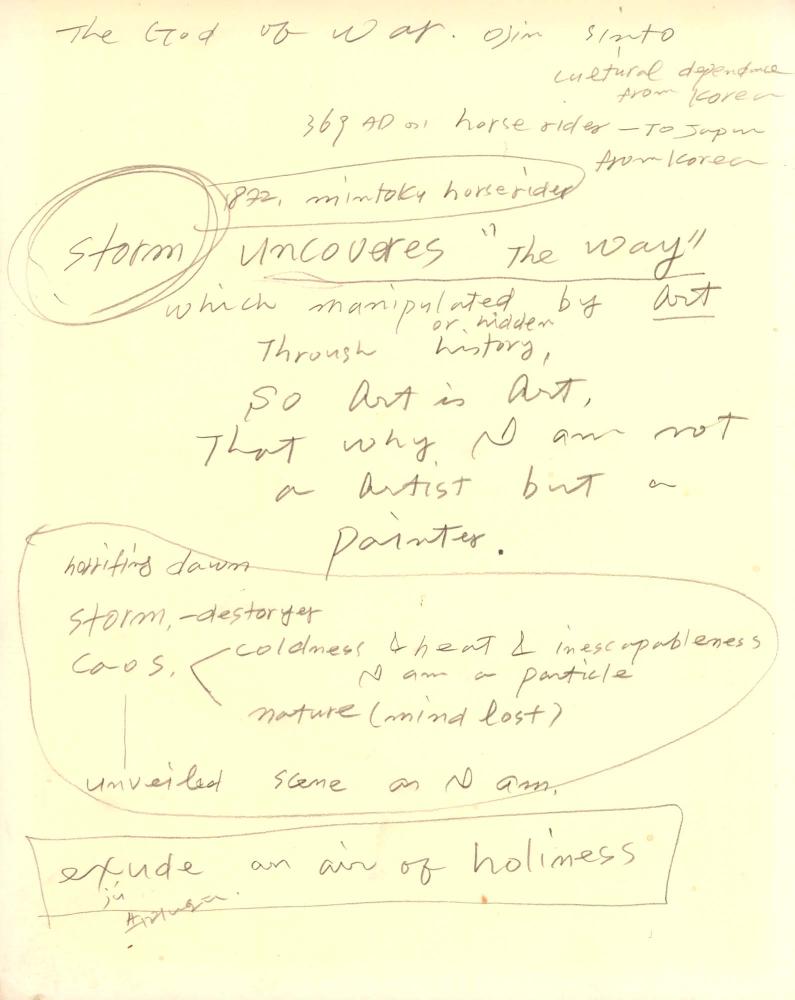 The God of war. Ojin sinto
cultural dependance
from Korea
369 AD horse rider - To Japan
from Korea
1872, mintoku horserider
storm uncoveres "The way"
which manipulated by art
or hidden
Through history,
So Art is Art,
That why I am not
a artist but a
painter.
horrifing dawn
storm, -destoryer
caos, coldness & heat & inescapableness
I am a particle
nature (mind lost)
unveiled scene as I am.
exude an air of holiness